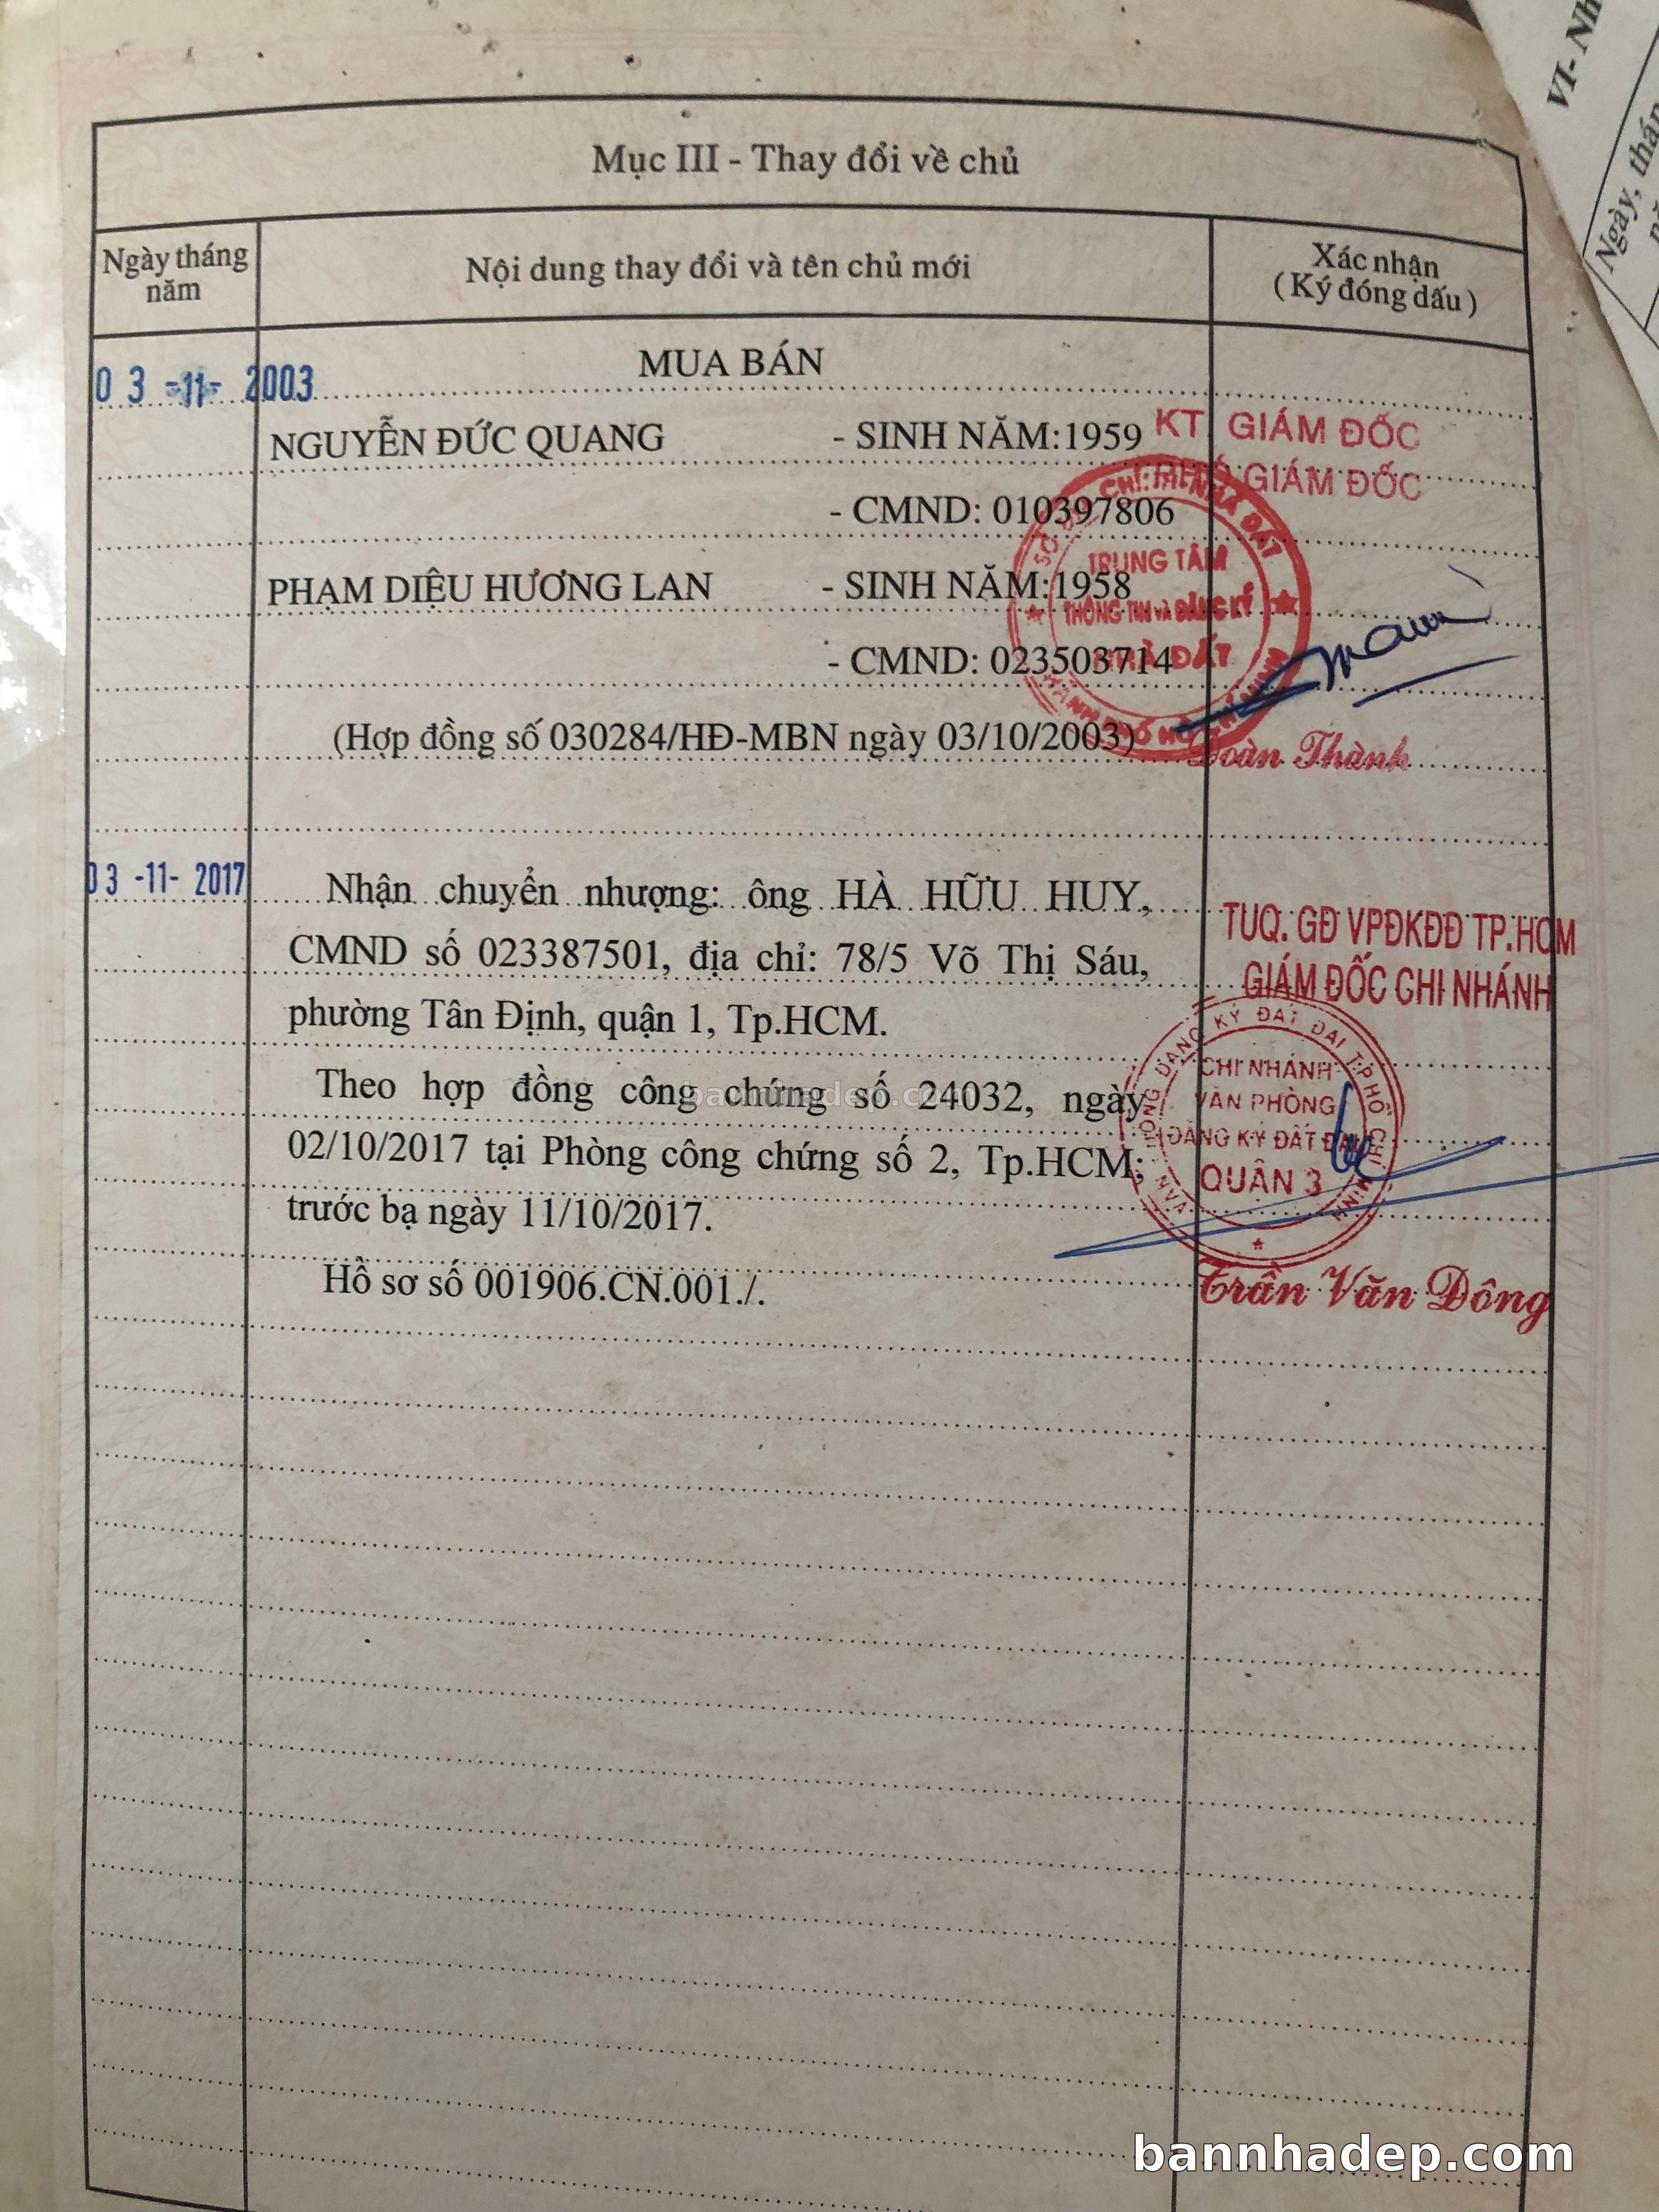 Mục III - Thay đổi về chủ
Ngày tháng
năm
Nội dung thay đổi và tên chủ mới
Xác nhận
( Ký đóng dấu )
03 -11- 2003
MUA BÁN
NGUYỄN ĐỨC QUANG - SINH NĂM:1959
- CMND: 010397806
PHẠM DIỆU HƯƠNG LAN - SINH NĂM:1958
- CMND: 023503714
(Hợp đồng số 030284/HĐ-MBN ngày 03/10/2003)
KT. GIÁM ĐỐC
PHÓ GIÁM ĐỐC
TRUNG TÂM
THÔNG TIN VÀ ĐĂNG KÝ
NHÀ ĐẤT
Đoàn Thành
03 -11- 2017
Nhận chuyển nhượng: ông HÀ HỮU HUY,
CMND số 023387501, địa chỉ: 78/5 Võ Thị Sáu,
phường Tân Định, quận 1, Tp.HCM.
Theo hợp đồng công chứng số 24032, ngày
02/10/2017 tại Phòng công chứng số 2, Tp.HCM;
trước bạ ngày 11/10/2017.
Hồ sơ số 001906.CN.001./.
TUQ. GĐ VPĐKĐĐ TP.HCM
GIÁM ĐỐC CHI NHÁNH
VĂN PHÒNG ĐĂNG KÝ ĐẤT ĐAI T.P HỒ CHÍ MINH
CHI NHÁNH
VĂN PHÒNG
ĐĂNG KÝ ĐẤT ĐAI
QUẬN 3
Trần Văn Đông
VI- Nh
Ngày, thán
bannhadep.com
bannhadep.com